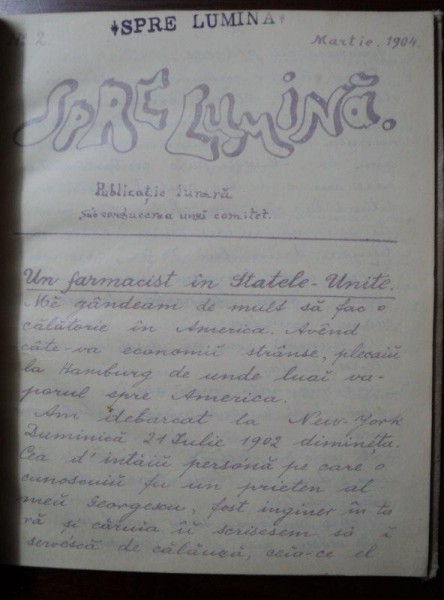 SPRE LUMINA
No. 2.
Martie. 1904
SPRE LUMINĂ.
Publicație lunară
sub conducerea unui comitet.
Un farmacist în Statele-Unite.
Mĕ gândeam de mult să fac o
călătorie in America. Avênd
câte-va economii strânse, plecaiŭ
la Hamburg de unde luaĭ va-
porul spre America.
Am debarcat la New-York
Duminică 21 Iulie 1902 diminéța.
Cea d'intâiŭ persónă pe care o
cunoscuiŭ fu un prieten al
meŭ Georgescu, fost inginer în ța
ră și căruia îĭ scrisesem să-ĭ
servéscă de călăuză, ceia-ce el